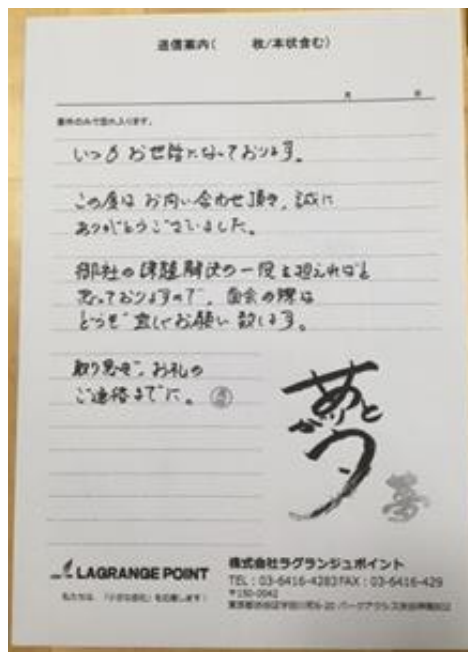 送信案内(　　枚/本状含む)
月　　日
要件のみで恐れ入ります。
いつもお世話になっております。
この度はお問い合わせ頂き、誠に
ありがとうございました。
御社の課題解決の一役を担えればと
思っておりますので、面会の際は
どうぞ宜しくお願い致します。
取り急ぎ、お礼の
ご連絡までに。
ありがと
夢
LAGRANGE POINT
私たちは、「小さな会社」を応援します!
株式会社ラグランジュポイント
TEL:03-6416-4283 FAX:03-6416-429
〒150-0042